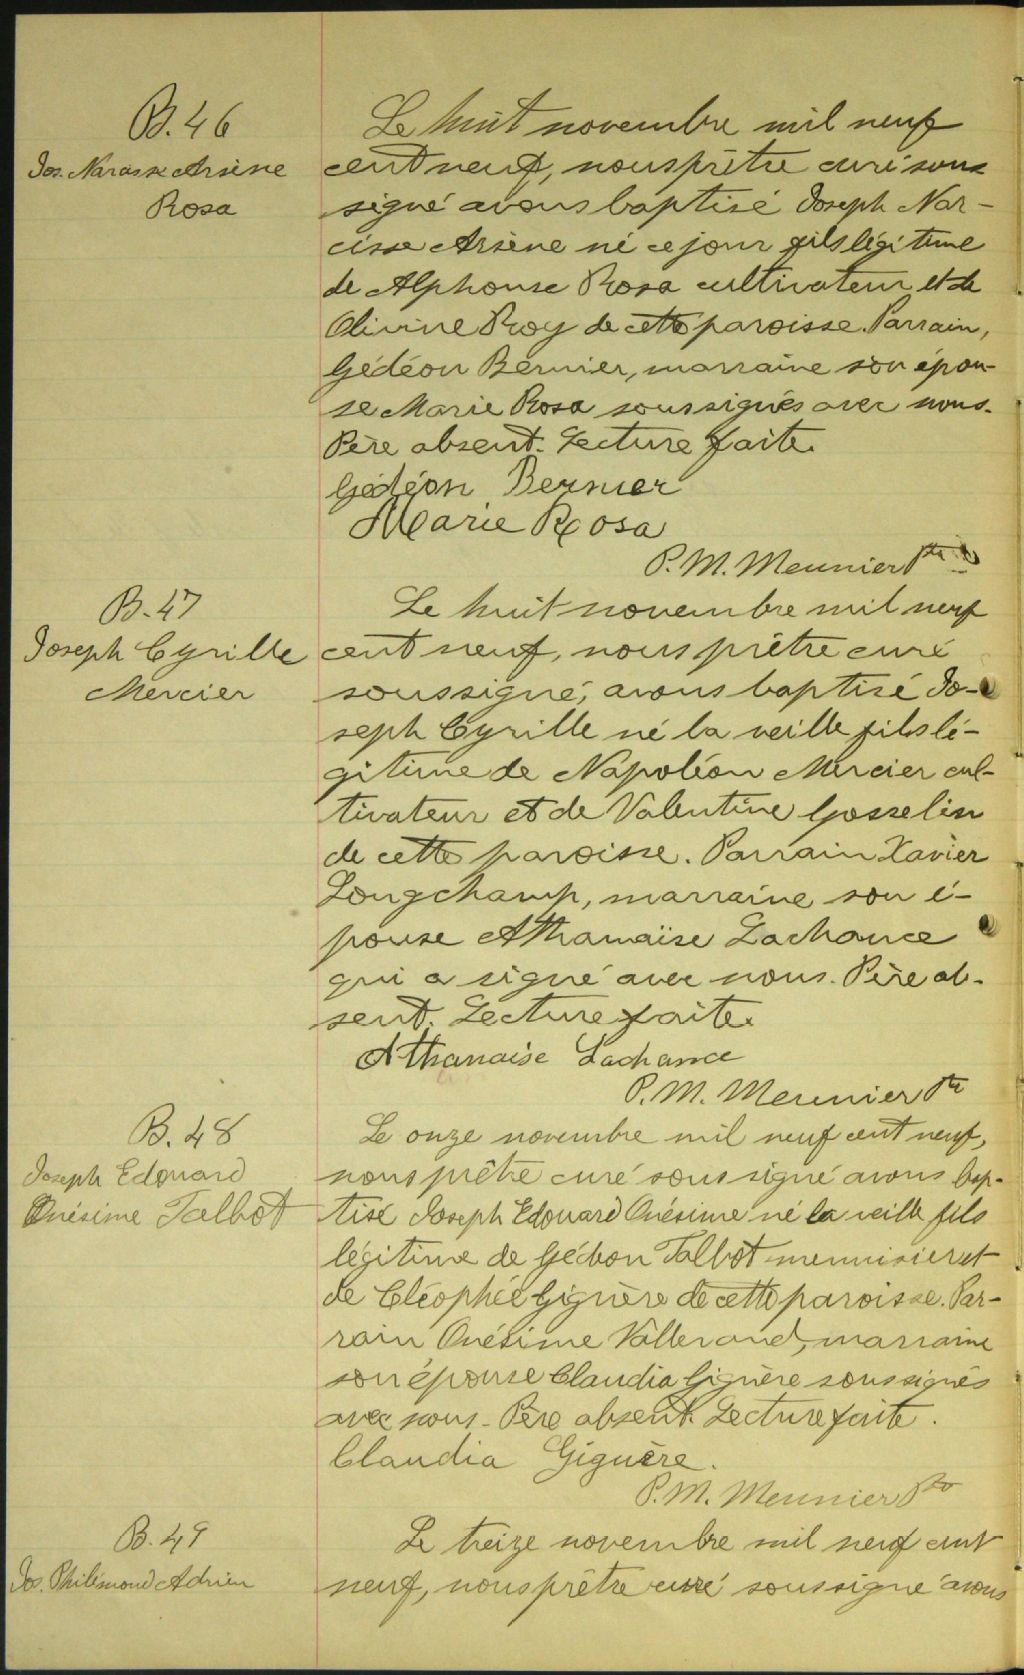 B. 46
Jos. Narcisse Arsène
Rosa
Le huit novembre mil neuf
cent neuf, nous prêtre curé sous
signé avons baptisé Joseph Nar-
cisse Arsène né ce jour fils légitime
de Alphonse Rosa cultivateur et de
Olivine Roy de cette paroisse. Parrain,
Gédéon Bernier, marraine son épou-
se Marie Rosa soussignés avec nous.
Père absent. Lecture faite.
Gédéon Bernier
Marie Rosa
P. M. Meunier Ptre
B. 47
Joseph Cyrille
Mercier
Le huit novembre mil neuf
cent neuf, nous prêtre curé
soussigné, avons baptisé Jo-
seph Cyrille né la veille fils lé-
gitime de Napoléon Mercier cul-
tivateur et de Valentine Gosselin
de cette paroisse. Parrain Xavier
Longchamp, marraine son é-
pouse Athanaïse Lachance
qui a signé avec nous. Père ab-
sent. Lecture faite.
Athanaise Lachance
P. M. Meunier Ptr
B. 48
Joseph Edouard
Onésime Talbot
Le onze novembre mil neuf cent neuf,
nous prêtre curé soussigné avons bap-
tisé Joseph Edouard Onésime né la veille fils
légitime de Gédéon Talbot menuisier et
de Cléophée Giguère de cette paroisse. Par-
rain Onésime Vallerand, marraine
son épouse Claudia Giguère soussignés
avec nous. Père absent. Lecture faite.
Claudia Giguère.
P. M. Meunier Ptre
B. 49
Jos. Philémond Adrien
Le treize novembre mil neuf cent
neuf, nous prêtre curé soussigné avons